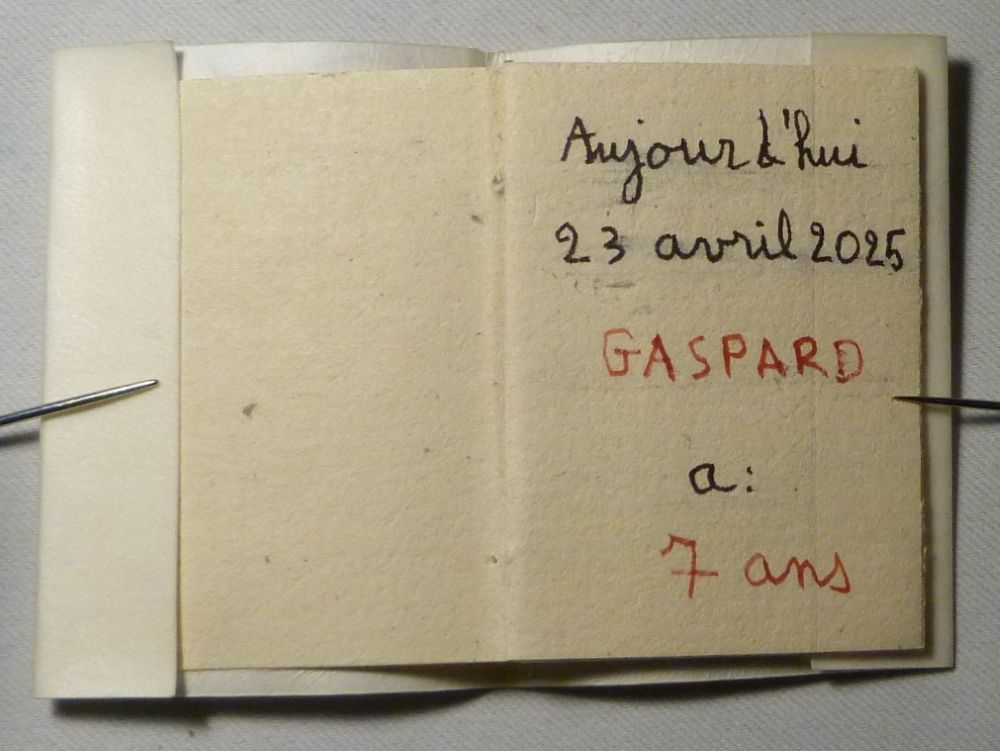 Aujourd'hui
23 avril 2025
GASPARD
a:
7 ans